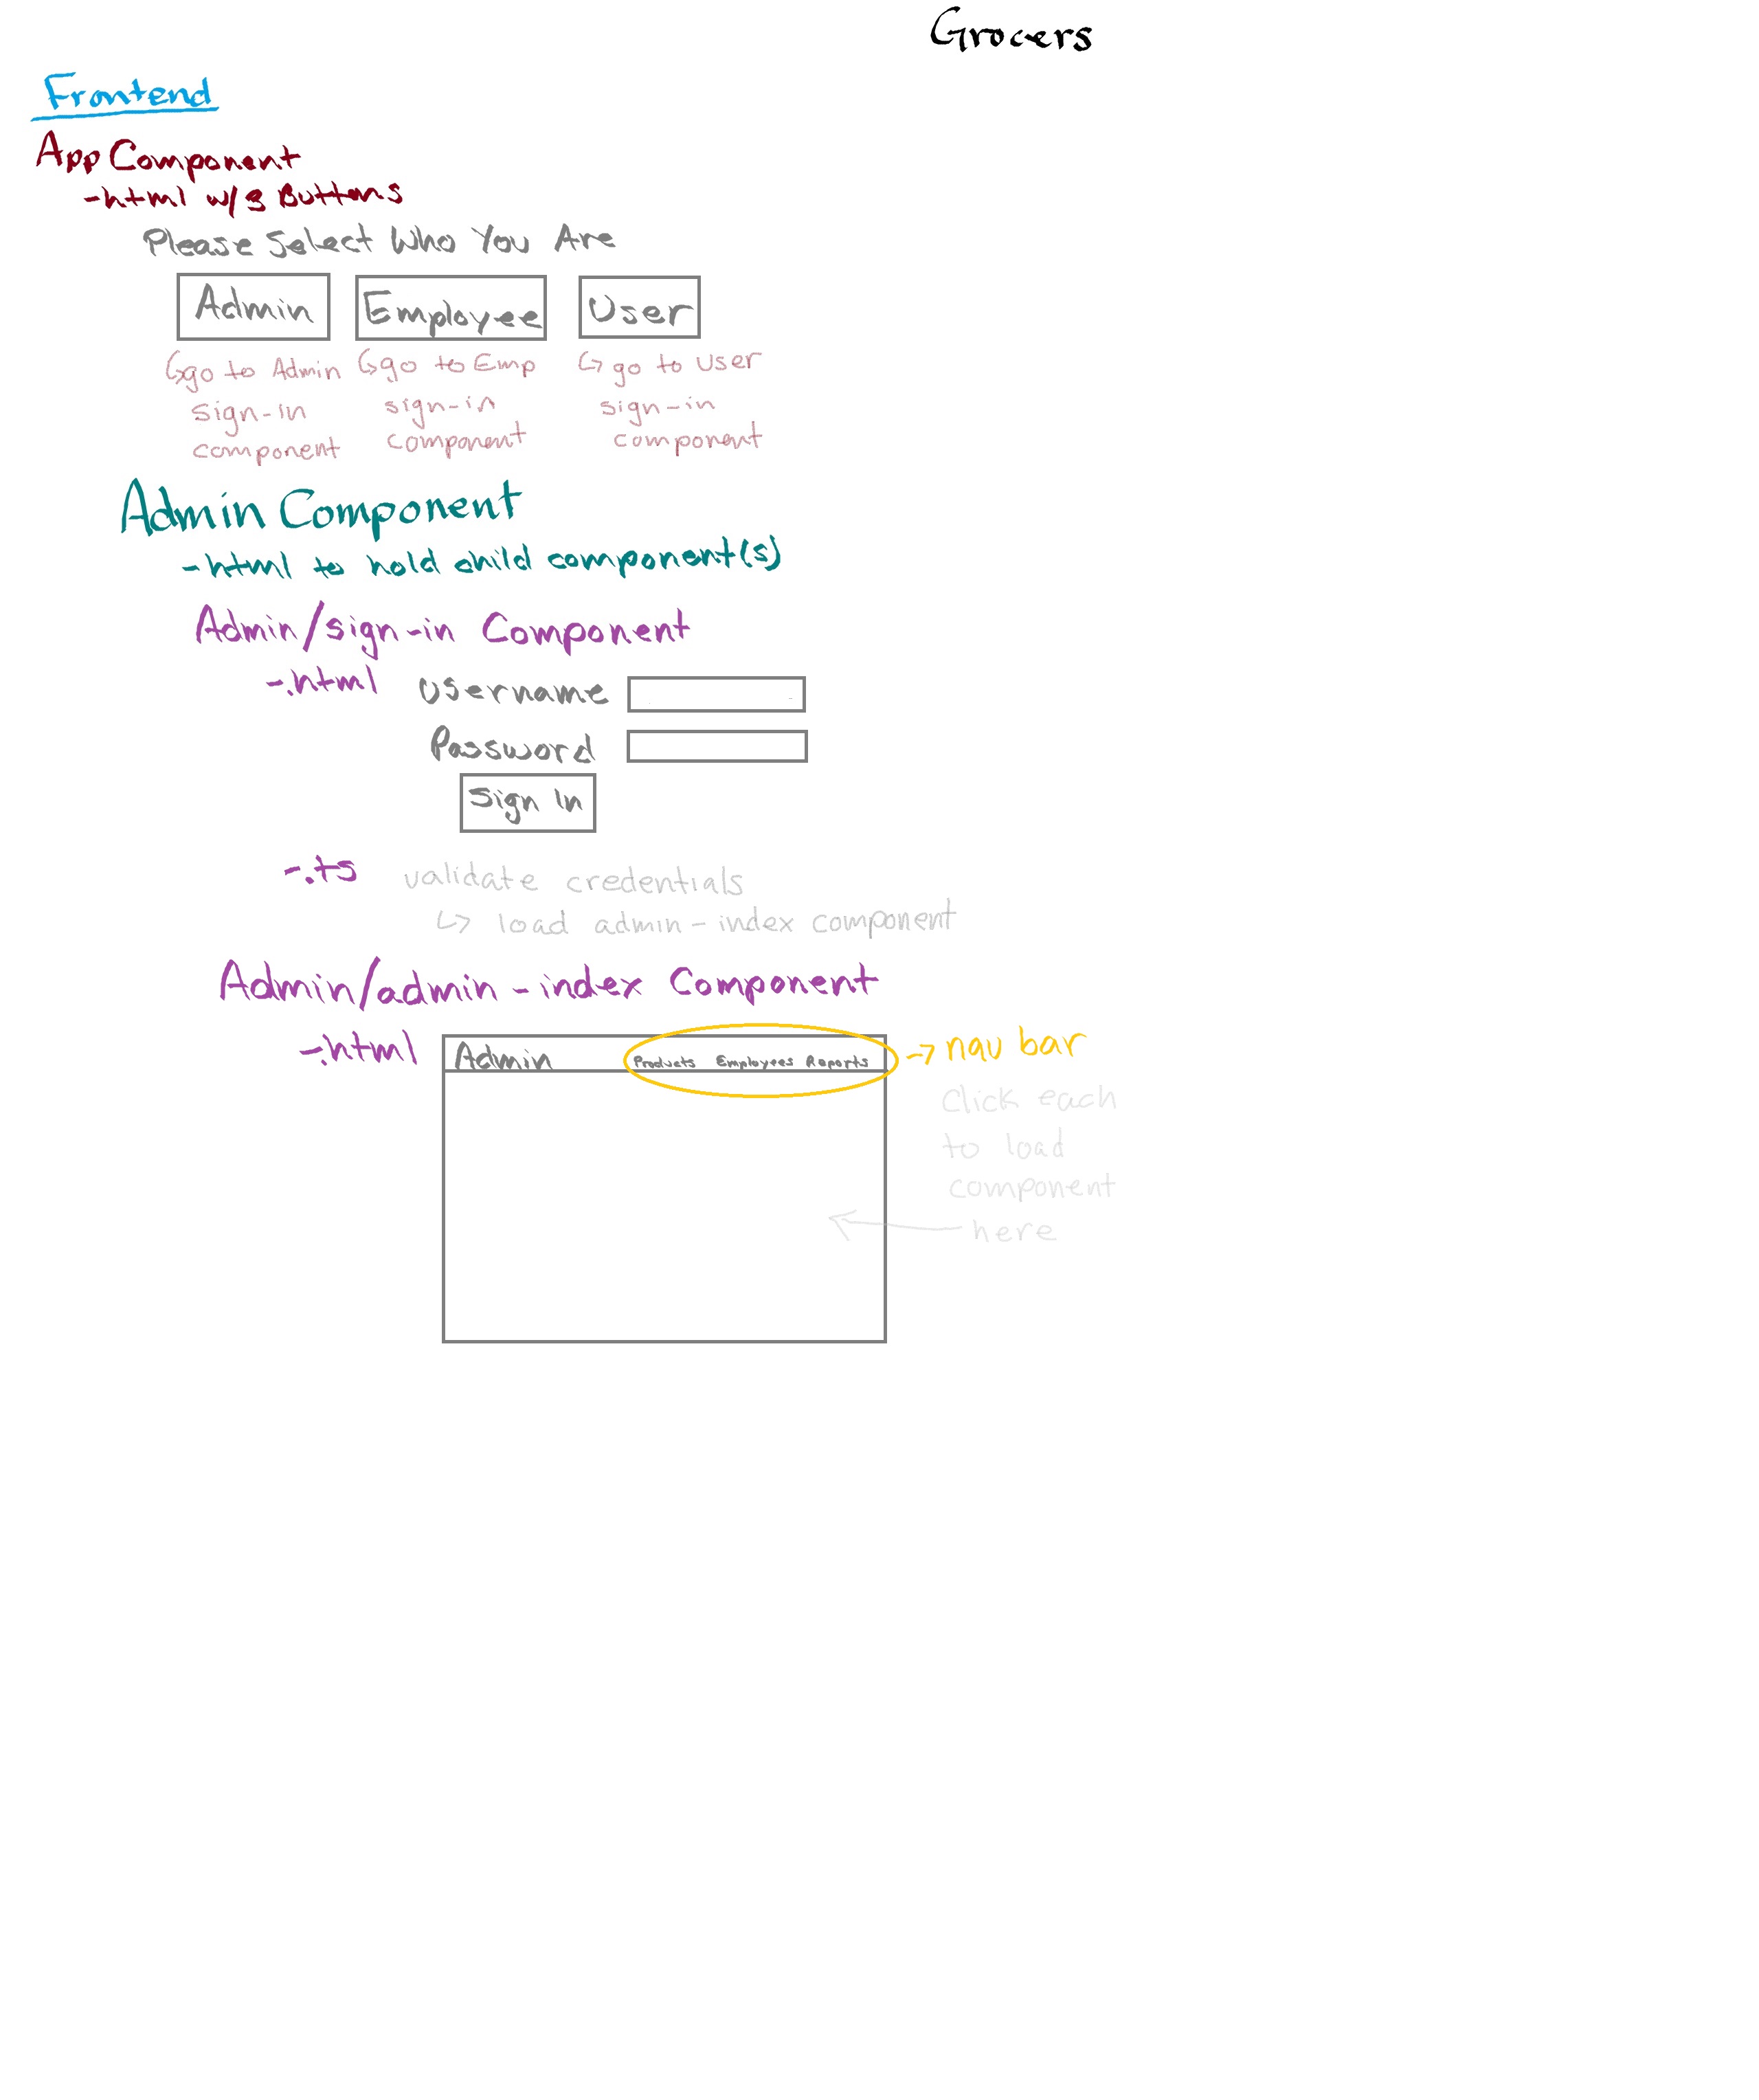 Grocers
Frontend
App Component
-html w/3 Buttons
Please Select Who You Are
Admin Employee User
↳go to Admin sign-in component
↳go to Emp sign-in component
↳ go to user sign-in component
Admin Component
-html to hold child component(s)
Admin/sign-in Component
-.html Username
Password
Sign In
-.ts validate credentials
↳ load admin-index component
Admin/admin-index Component
-.html Admin Products Employees Reports → nav bar
Click each
to load
component
here